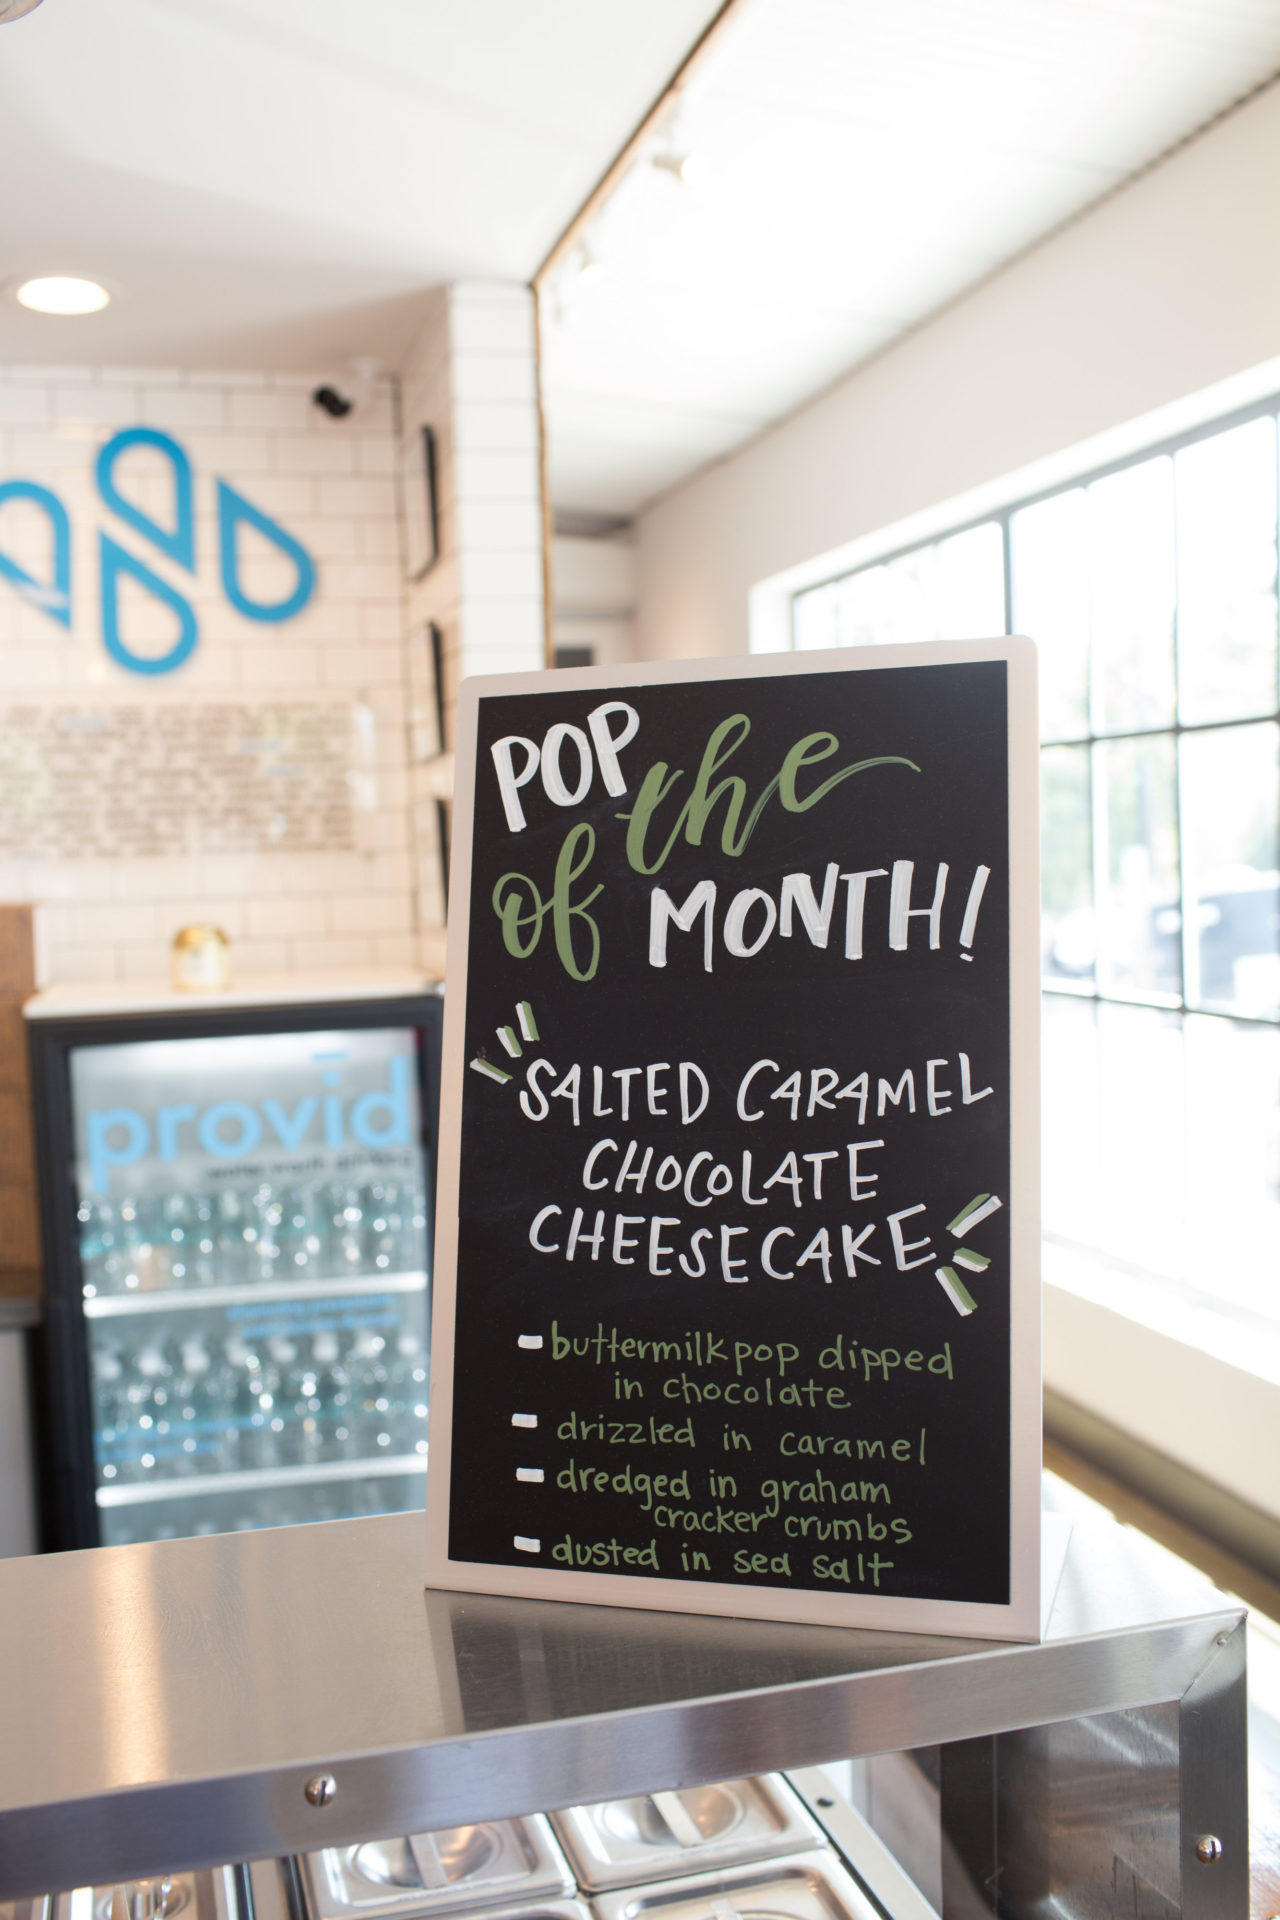 POP the
of MONTH!
SALTED CARAMEL
CHOCOLATE
CHEESECAKE
- buttermilk pop dipped
in chocolate
- drizzled in caramel
- dredged in graham
cracker crumbs
- dusted in sea salt
provid